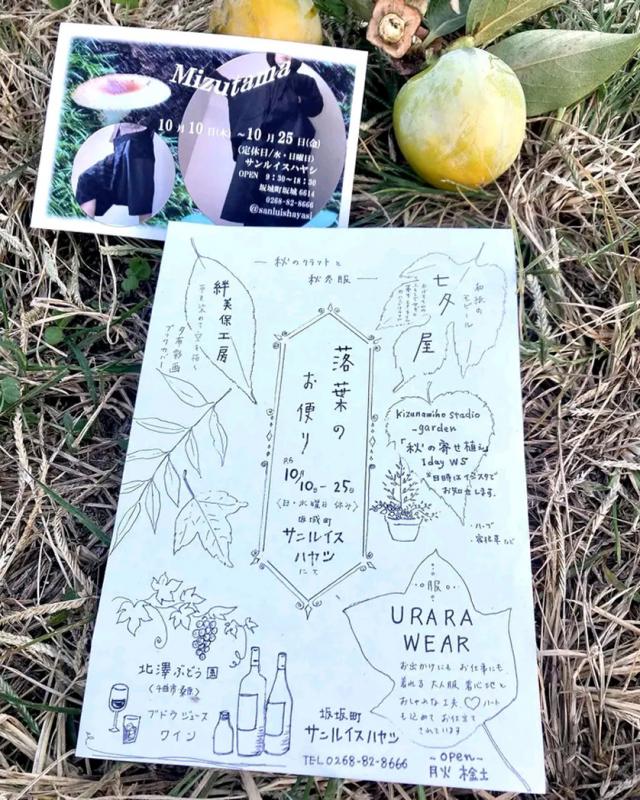 Mizutama
10月10日(木)~10月25日(金)
(定休日/水・日曜日)
サンルイスハヤシ
OPEN 9:30~18:30
坂城町坂城6614
0268-82-8666
@sanluishayasi
― 秋のクラフトと
秋冬服 ―
絆美保工房
ブックカバー
七夕屋
和紙の
モビール
落葉の
お便り
R6
10月
10日-25日
〈日・水曜日 休み〉
坂城町
サンルイス
ハヤシ
にて
Kizunamiho studio
-garden
「秋の寄せ植え」
1day WS
*日時はインスタで
お知らせします。
・ハーブ
・服・
URARA
WEAR
お出かけにも お仕事にも
着れる 大人服 着心地と
おしゃれな工夫 ♡ハート
も込めて お仕立て
されています
北澤ぶどう園
ブドウジュース
ワイン
坂坂町
サンルイスハヤシ
TEL 0268-82-8666
~open~
月火 木金土